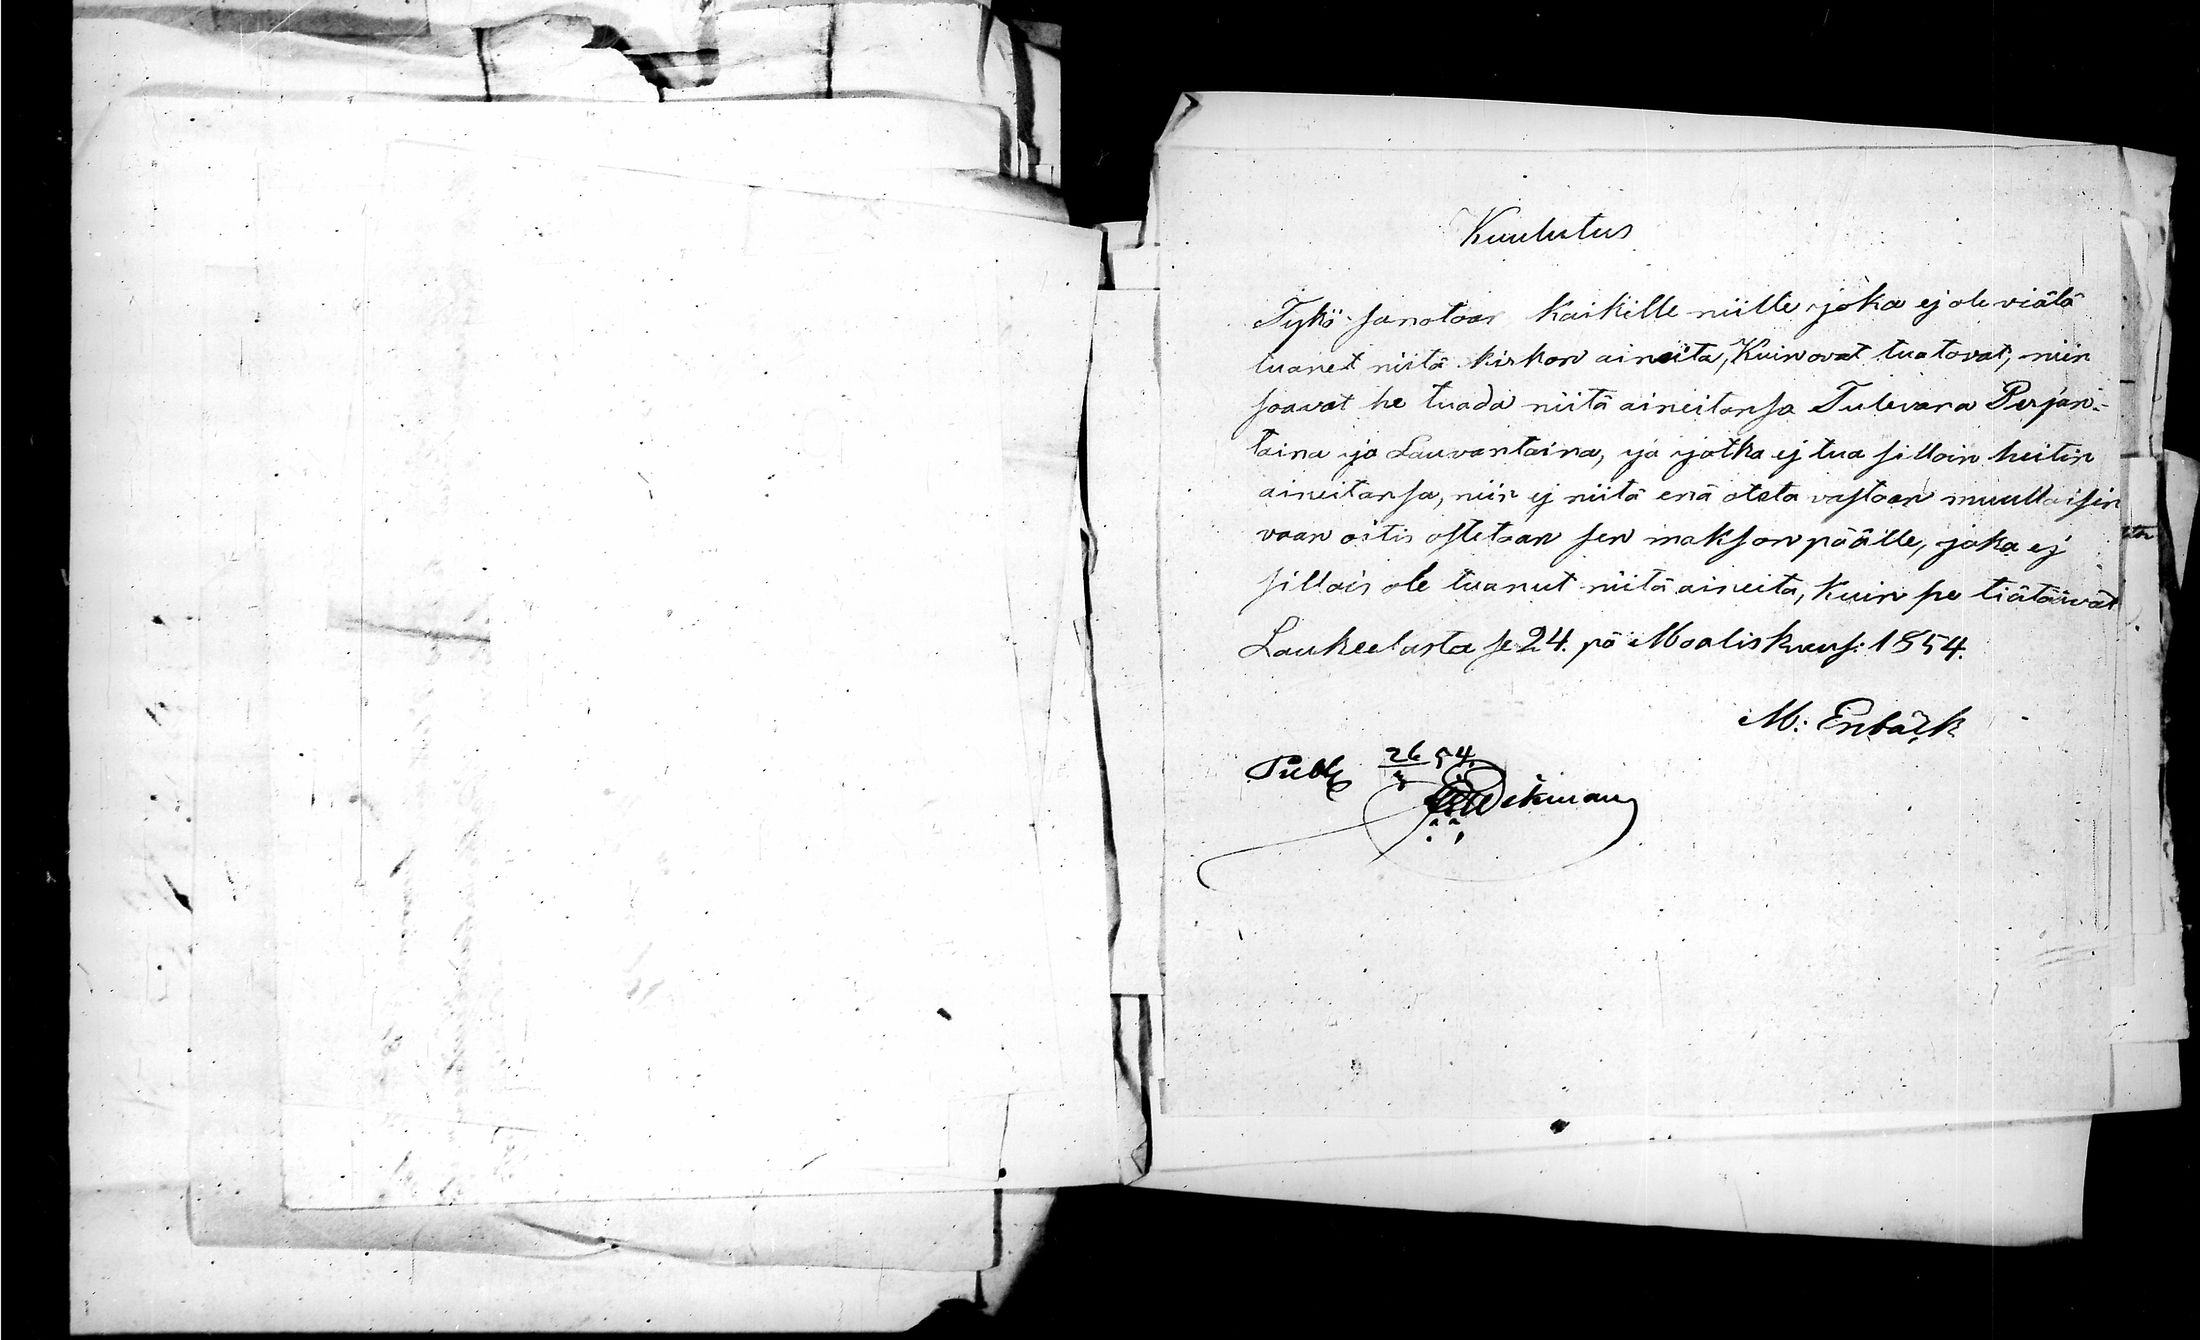 Kuulutus
Tykö sanotaan Kaikille niille joka ej ole viälä
tuanet niitä kirkon aineita, Kuin ovat tuatovat, niin
saavat he tuada niitä aineitansa Tulevana Perjan-
taina ja Lauvantaina, ja jotka ej tua silloin heitin
aineitansa, niin ej niitä enä oteta vastaan muullaisin
vaan oitis ostetaan sen makson päälle, joka ej
sillois ole tuanut niitä aineita, Kuin he tiätävät
Laukeelasta se 24. pä Maaliskuus: 1854.
M: Enbäck
Publ 26/3 54.
Wekman